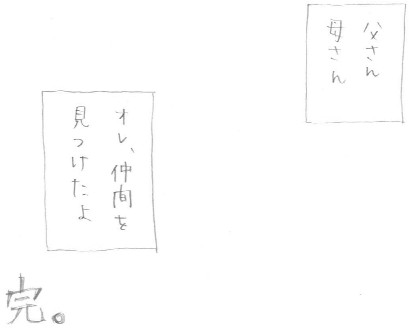 父さん
母さん
オレ、仲間を
見つけたよ
完。